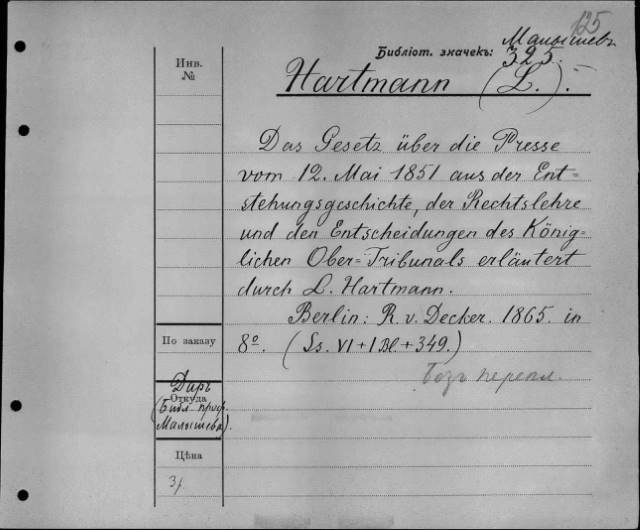 125
Малышевъ
Библіот. значекъ: 325.
Инв.
№
Hartmann (L.).
Das Gesetz über die Presse
vom 12. Mai 1851 aus der Ent=
stehungsgeschichte, der Rechtslehre
und den Entscheidungen des König=
lichen Ober=Tribunals erläutert
durch L. Hartmann.
Berlin: R. v. Decker. 1865. in
8º. (Ss. VI + 1 Bl. + 349.)
По заказу
безъ перепл.
Даръ
Откуда
(Библ. проф.
Малышева).
Цѣна
3/.